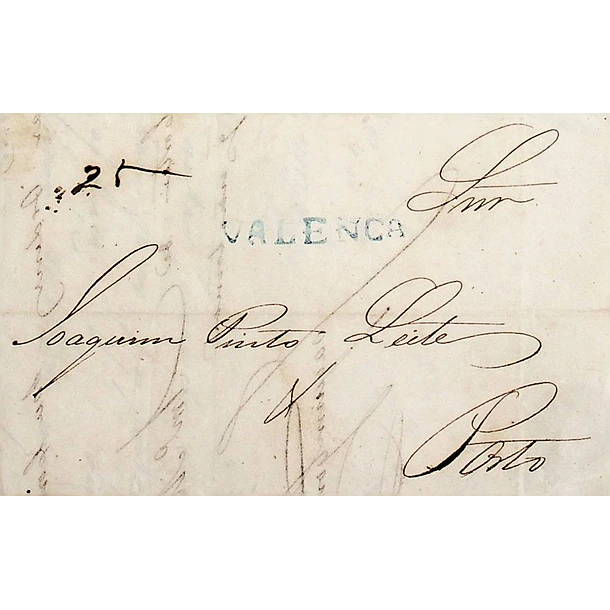 25
Snr
VALENCA
Joaquim Pinto Leite
Porto